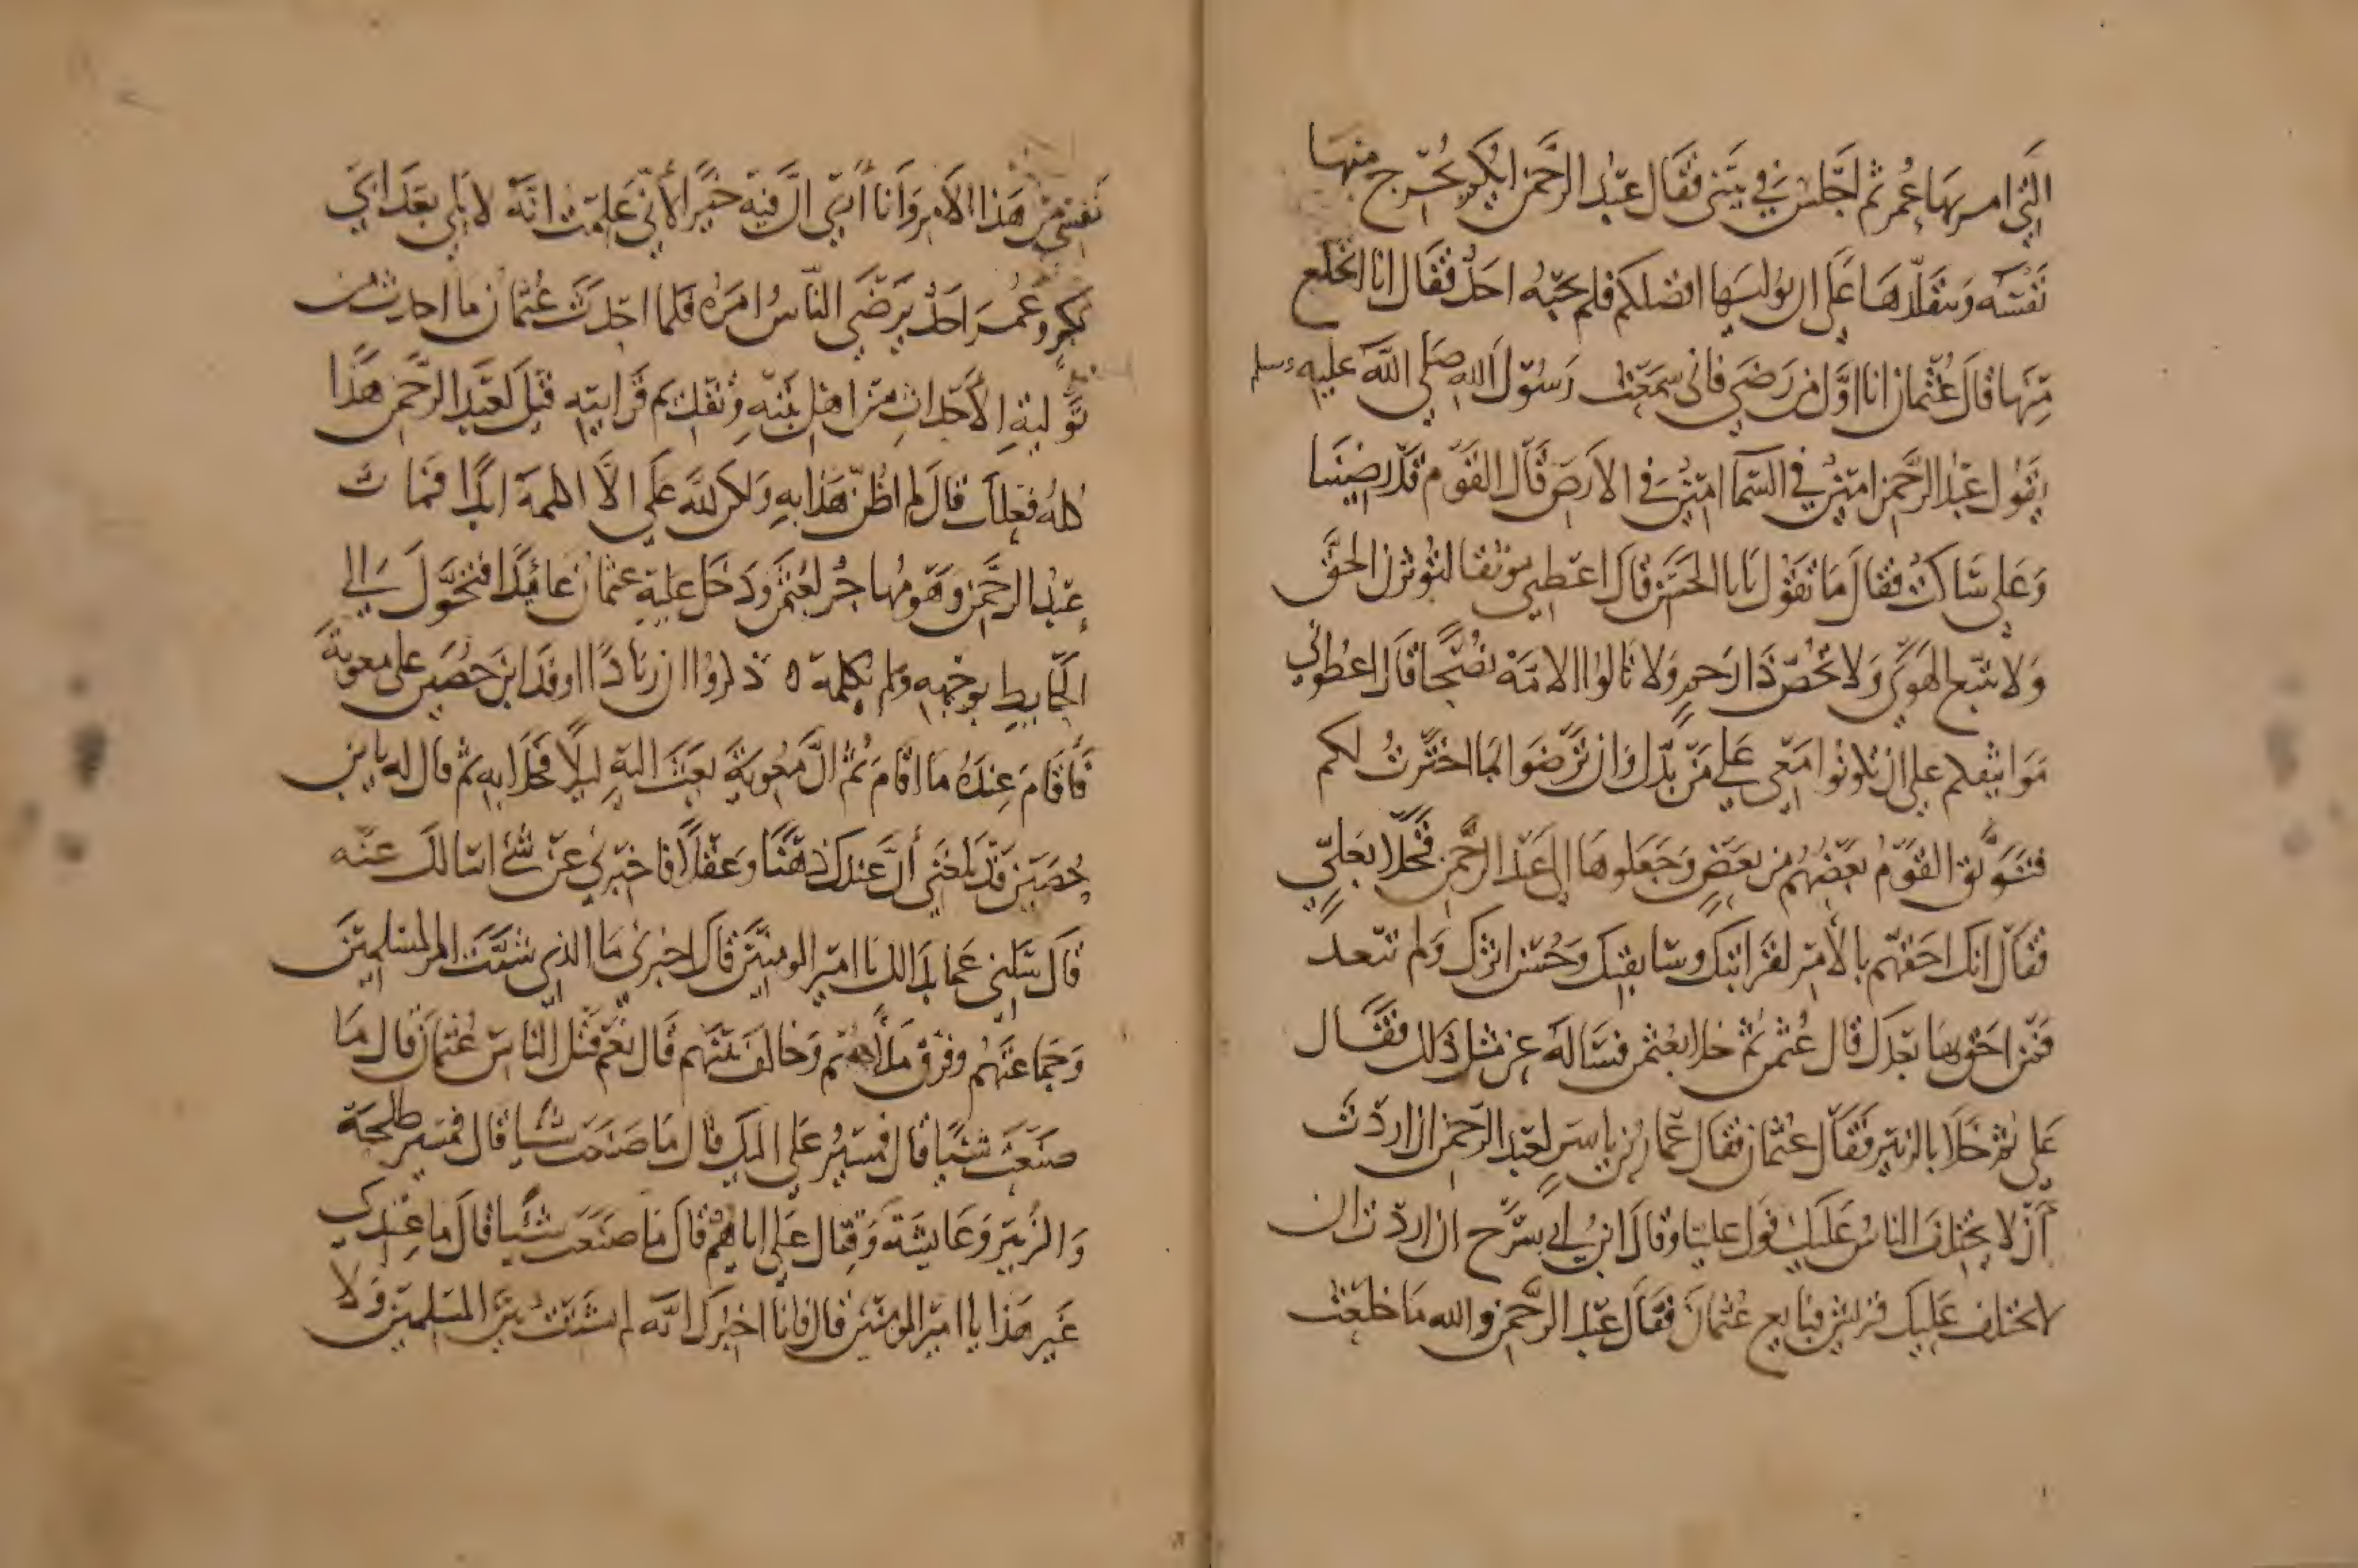 التي امر بها عمر ثم اجلس في بيتي فقال عبد الرحمن ايكم يخرج منها
نفسه ويتقلدها على ان يوليها افضلكم فلم يجبه احد فقال انا انخلع
منها قال عثمان انا اول من رضي فاني سمعت رسول الله صلى الله عليه وسلم
يقول عبد الرحمن امين في السما امين في الارض قال القوم قد رضينا
وعلي ساكت فقال ما تقول يابا الحسن قال اعطني موثقا لتوثرن الحق
ولا تتبع الهوى ولا تخص ذا رحم ولا تالوا الامة نصحا قال اعطوني
مواثيقكم على ان تكونوا معي على من بدل وان ترضوا بما اخترت لكم
فتوثق القوم بعضهم من بعض وجعلوها الى عبد الرحمن فخلا بعلي
فقال انك احقهم بالامر لقرابتك وسابقتك وحسن اثرك ولم تبعد
فمن احق بها بعدك قال عثمن ثم خلا بعثمن فساله عن مثل ذلك فقال
علي ثم خلا بالزبير فقال عثمان فقال عمار بن ياسر لعبد الرحمن ان اردت
ان لا يختلف الناس عليك فول عليا وقال ابن ابي سرح ان اردت ان
لا تختلف عليك قريش فبايع عثمان فقال عبد الرحمن والله ما خلعت
نفسي من هذا الامر وانا ارى ان فيه خيرا لأني علمت انه لا يلي بعد ابي
بكر وعمر احد يرضى الناس امره فلما احدث عثمان ما احدث من
تولية الاحداث من اهل بيته وتقديم قرابته قيل لعبد الرحمن هذا
كله فعلك قال لم اظن هذا به ولكن لله علي الا اكلمه ابدا فمات
عبد الرحمن وهو مهاجر لعثمن ودخل عليه عثمان عائدا فتحول الى
الحايط بوجهه ولم يكلمه ه ذكروا ان زيادا اوفد ابن حصين على معوية
فاقام عنده ما اقام ثم ان معوية بعث اليه ليلا فخلا به ثم قال له يا ابن
حصين قد بلغني ان عندك ذهنا وعقلا فاخبرني عن شئ اسالك عنه
قال سلني عما بدا لك يا امير المومنين قال اخبرني ما الذي شتت امر المسلمين
وجماعتهم وفرق ملأهم وخالف بينهم قال نعم قتل الناس عثمان قال ما
صنعت شيئا قال فمسير علي اليك قال ما صنعت شيئا قال فمسير طلحة
والزبير وعايشة وقتال علي اياهم قال ما صنعت شيئا قال ما عندي
غير هذا يا امير المومنين قال فانا اخبرك انه لم يشتت بين المسلمين ولا